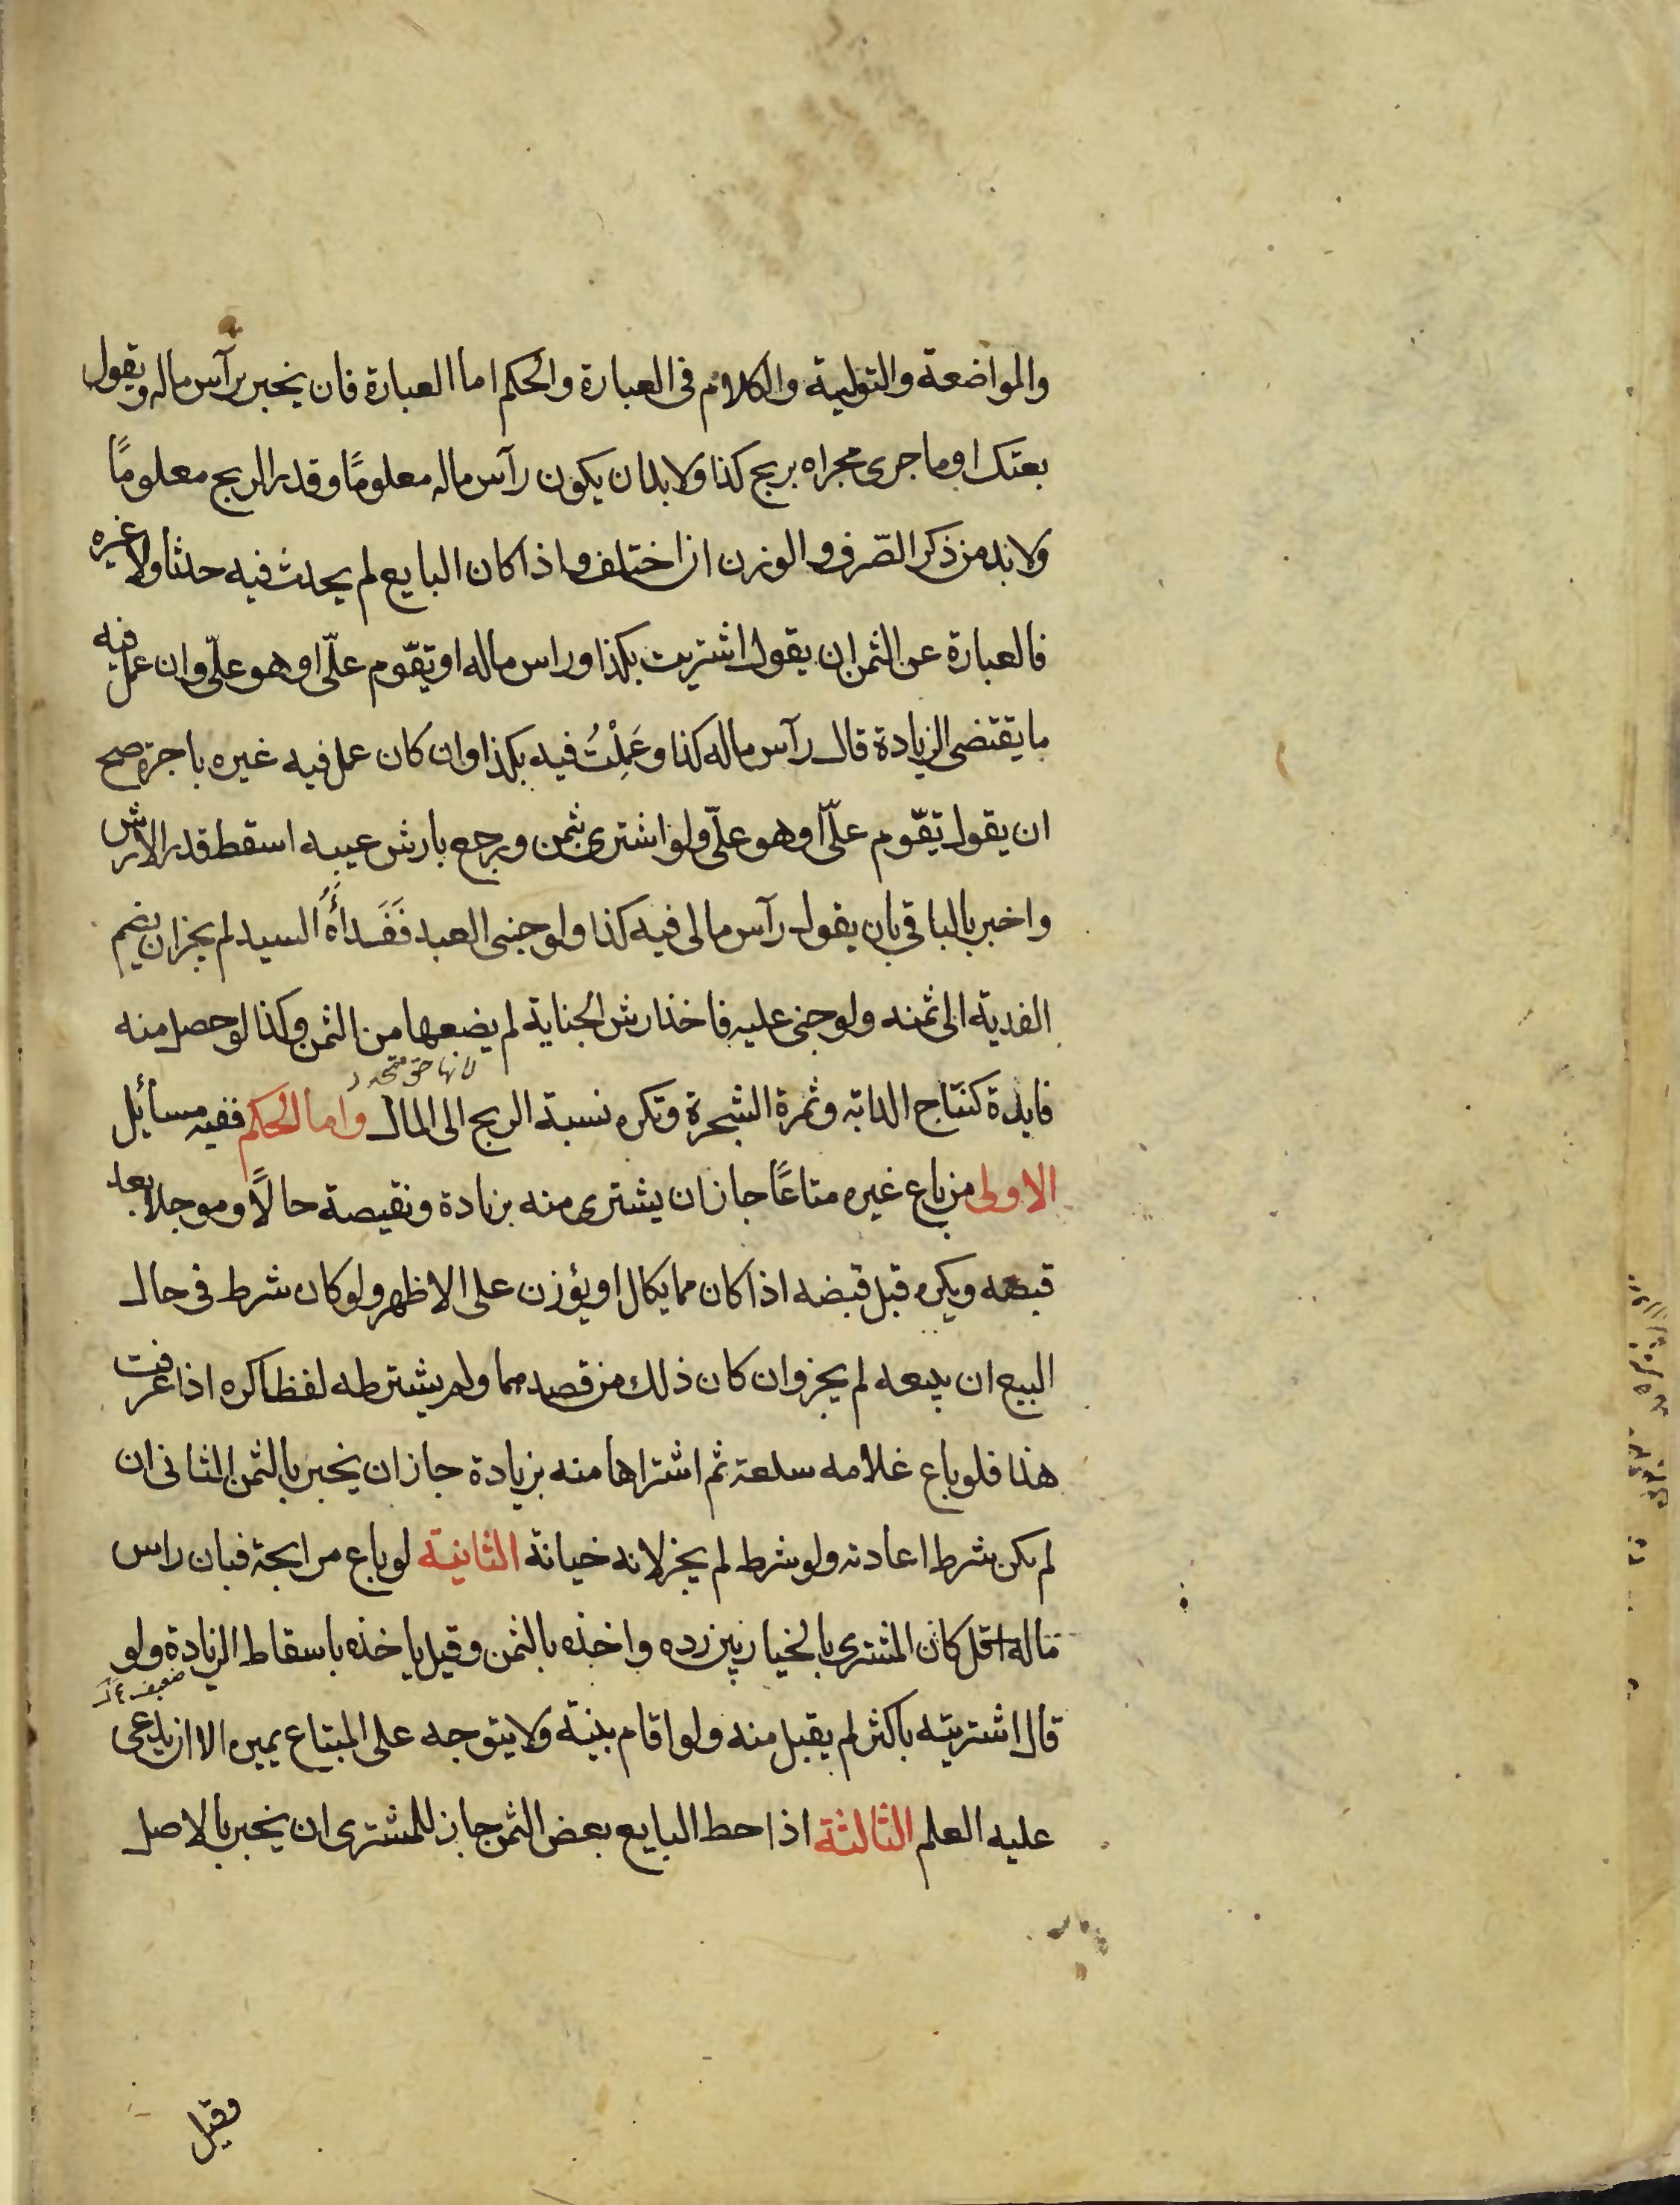 والمواضعة والتولية والكلام فى العبارة والحكم اما العبارة فان يخبر برآس ماله ويقول
بعتك او ما جرى مجراه بربح كذا ولا بد ان يكون رآس ماله معلومًا وقدر الربح معلومًا
ولا بد من ذكر الصّرف والوزن ان اختلف واذا كان البايع لم يحدث فيه حدثا ولا غيره
فالعبارة عن الثمن ان يقول اشتريت بكذا وراس ماله او تقّوم علىّ او هو علىّ وان عمل فيه
ما يقتضى الزيادة قال رآس ماله كذا وعَمِلْتُ فيه بكذا وان كان عمل فيه غيره باجرة صح
ان يقول تقّوم علىّ او هو علىّ ولو اشترى بثمن ورجع بارش عيبه اسقط قدر الارش
واخبر بالباقى بان يقول رآس مالى فيه كذا ولو جنى العبد فَفَداَُهُ السيد لم يجز ان يضم
الفدية الى ثمنه ولو جنى عليه فاخذ ارش الجناية لم يضعها من الثمن وكذا لو حصل منه
لانها حق متجدد
فايدة كنتاج الدابة وثمرة الشجرة وتكره نسبة الربح الى المال واما الحكم ففيه مسائيل
الاولى من باع غيره متاعًا جاز ان يشترى منه بزيادة ونقيصة حالًا وموجلا بعد
قبضه ويكره قبل قبضه اذا كان مما يكال او يؤزن على الاظهر ولو كان شرط فى حال
البيع ان يبيعه لم يجز وان كان ذلك من قصدهما ولم يشترطه لفظا كره اذا عرفت
هذا فلو باع غلامه سلعة ثم اشتراها منه بزيادة جاز ان يخبر بالثمن الثانى ان
لم يكن شرط اعادته ولو شرط لم يجز لانه خيانة الثانية لو باع مرابحة فبان راس
ماله اقل كان المشترى بالخيار بين رده واخذه بالثمن وقيل ياخذه باسقاط الزيادة ولو
ضعيف
قال اشتريته باكثر لم يقبل منه ولو اقام بينة ولا يتوجه على المبتاع يمين الا ان يدعى
عليه العلم الثالثة اذا حط البايع بعض الثمن جاز للمشترى ان يخبر بالاصل
وقيل